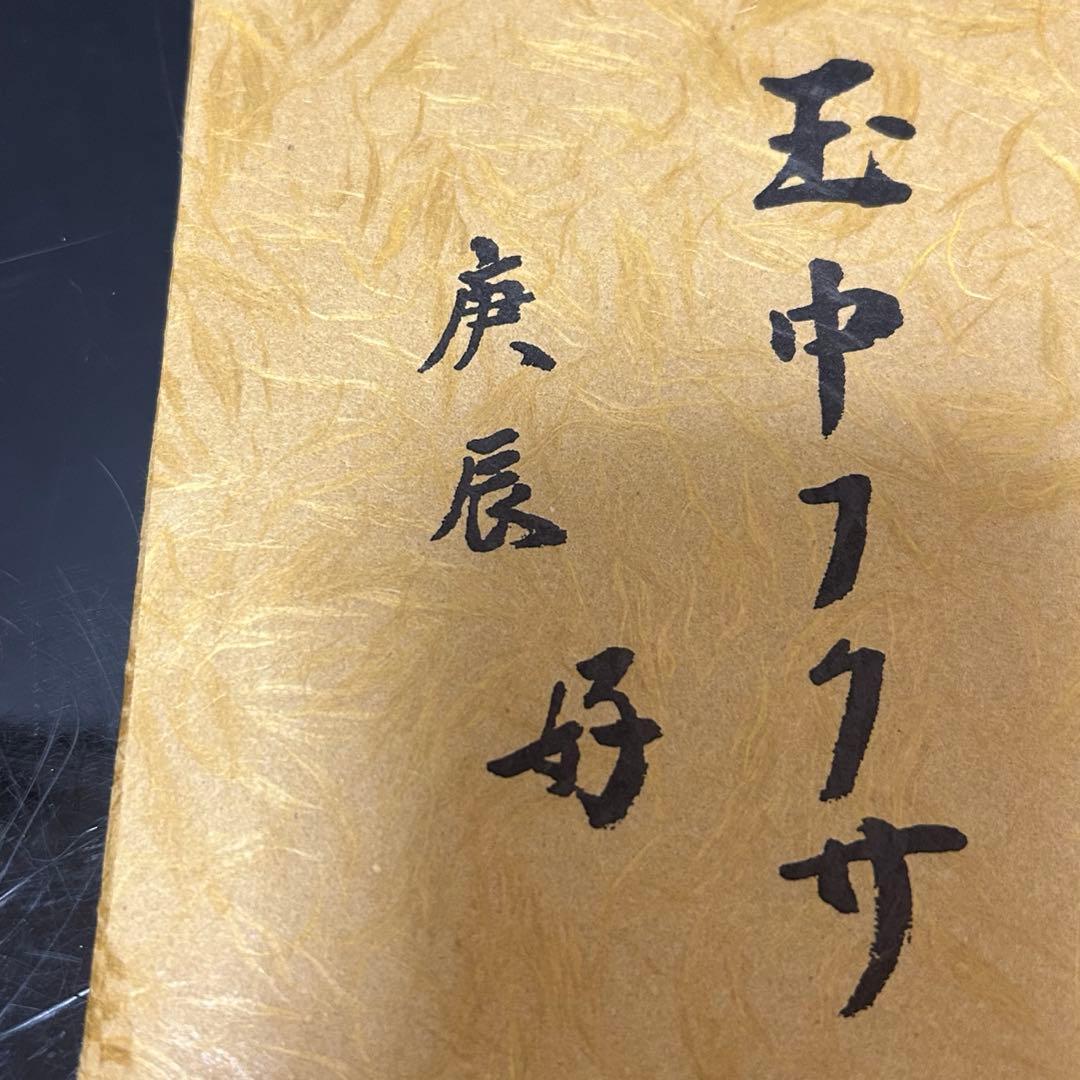 玉巾フクサ
庚辰 好